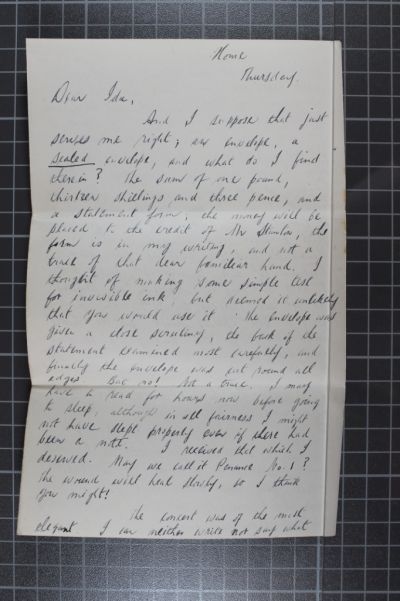 Home
Thursday.
Dear Ida,
And I suppose that just
serves me right; an envelope, a
sealed envelope, and what do I find
therein? The sum of one pound,
thirteen shillings and three pence, and
a statement form; the money will be
placed to the credit of Mr Stanton, the
form is in my writing, and not a
trace of that dear familiar hand. I
thought of making some simple test
for invisible ink, but deemed it unlikely
that you would use it. The envelope was
given a close scrutiny, the back of the
statement examined most carefully, and
finally the envelope was cut round all
edges. But no! Not a trace. I may
have to read for hours now before going
to sleep, although in all fairness I might
not have slept properly even if there had
been a note. I received that which I
deserved. May we call it Penance No. 1?
The wound will heal slowly, so I think
you might!
The concert was of the most
elegant I can neither write nor say what